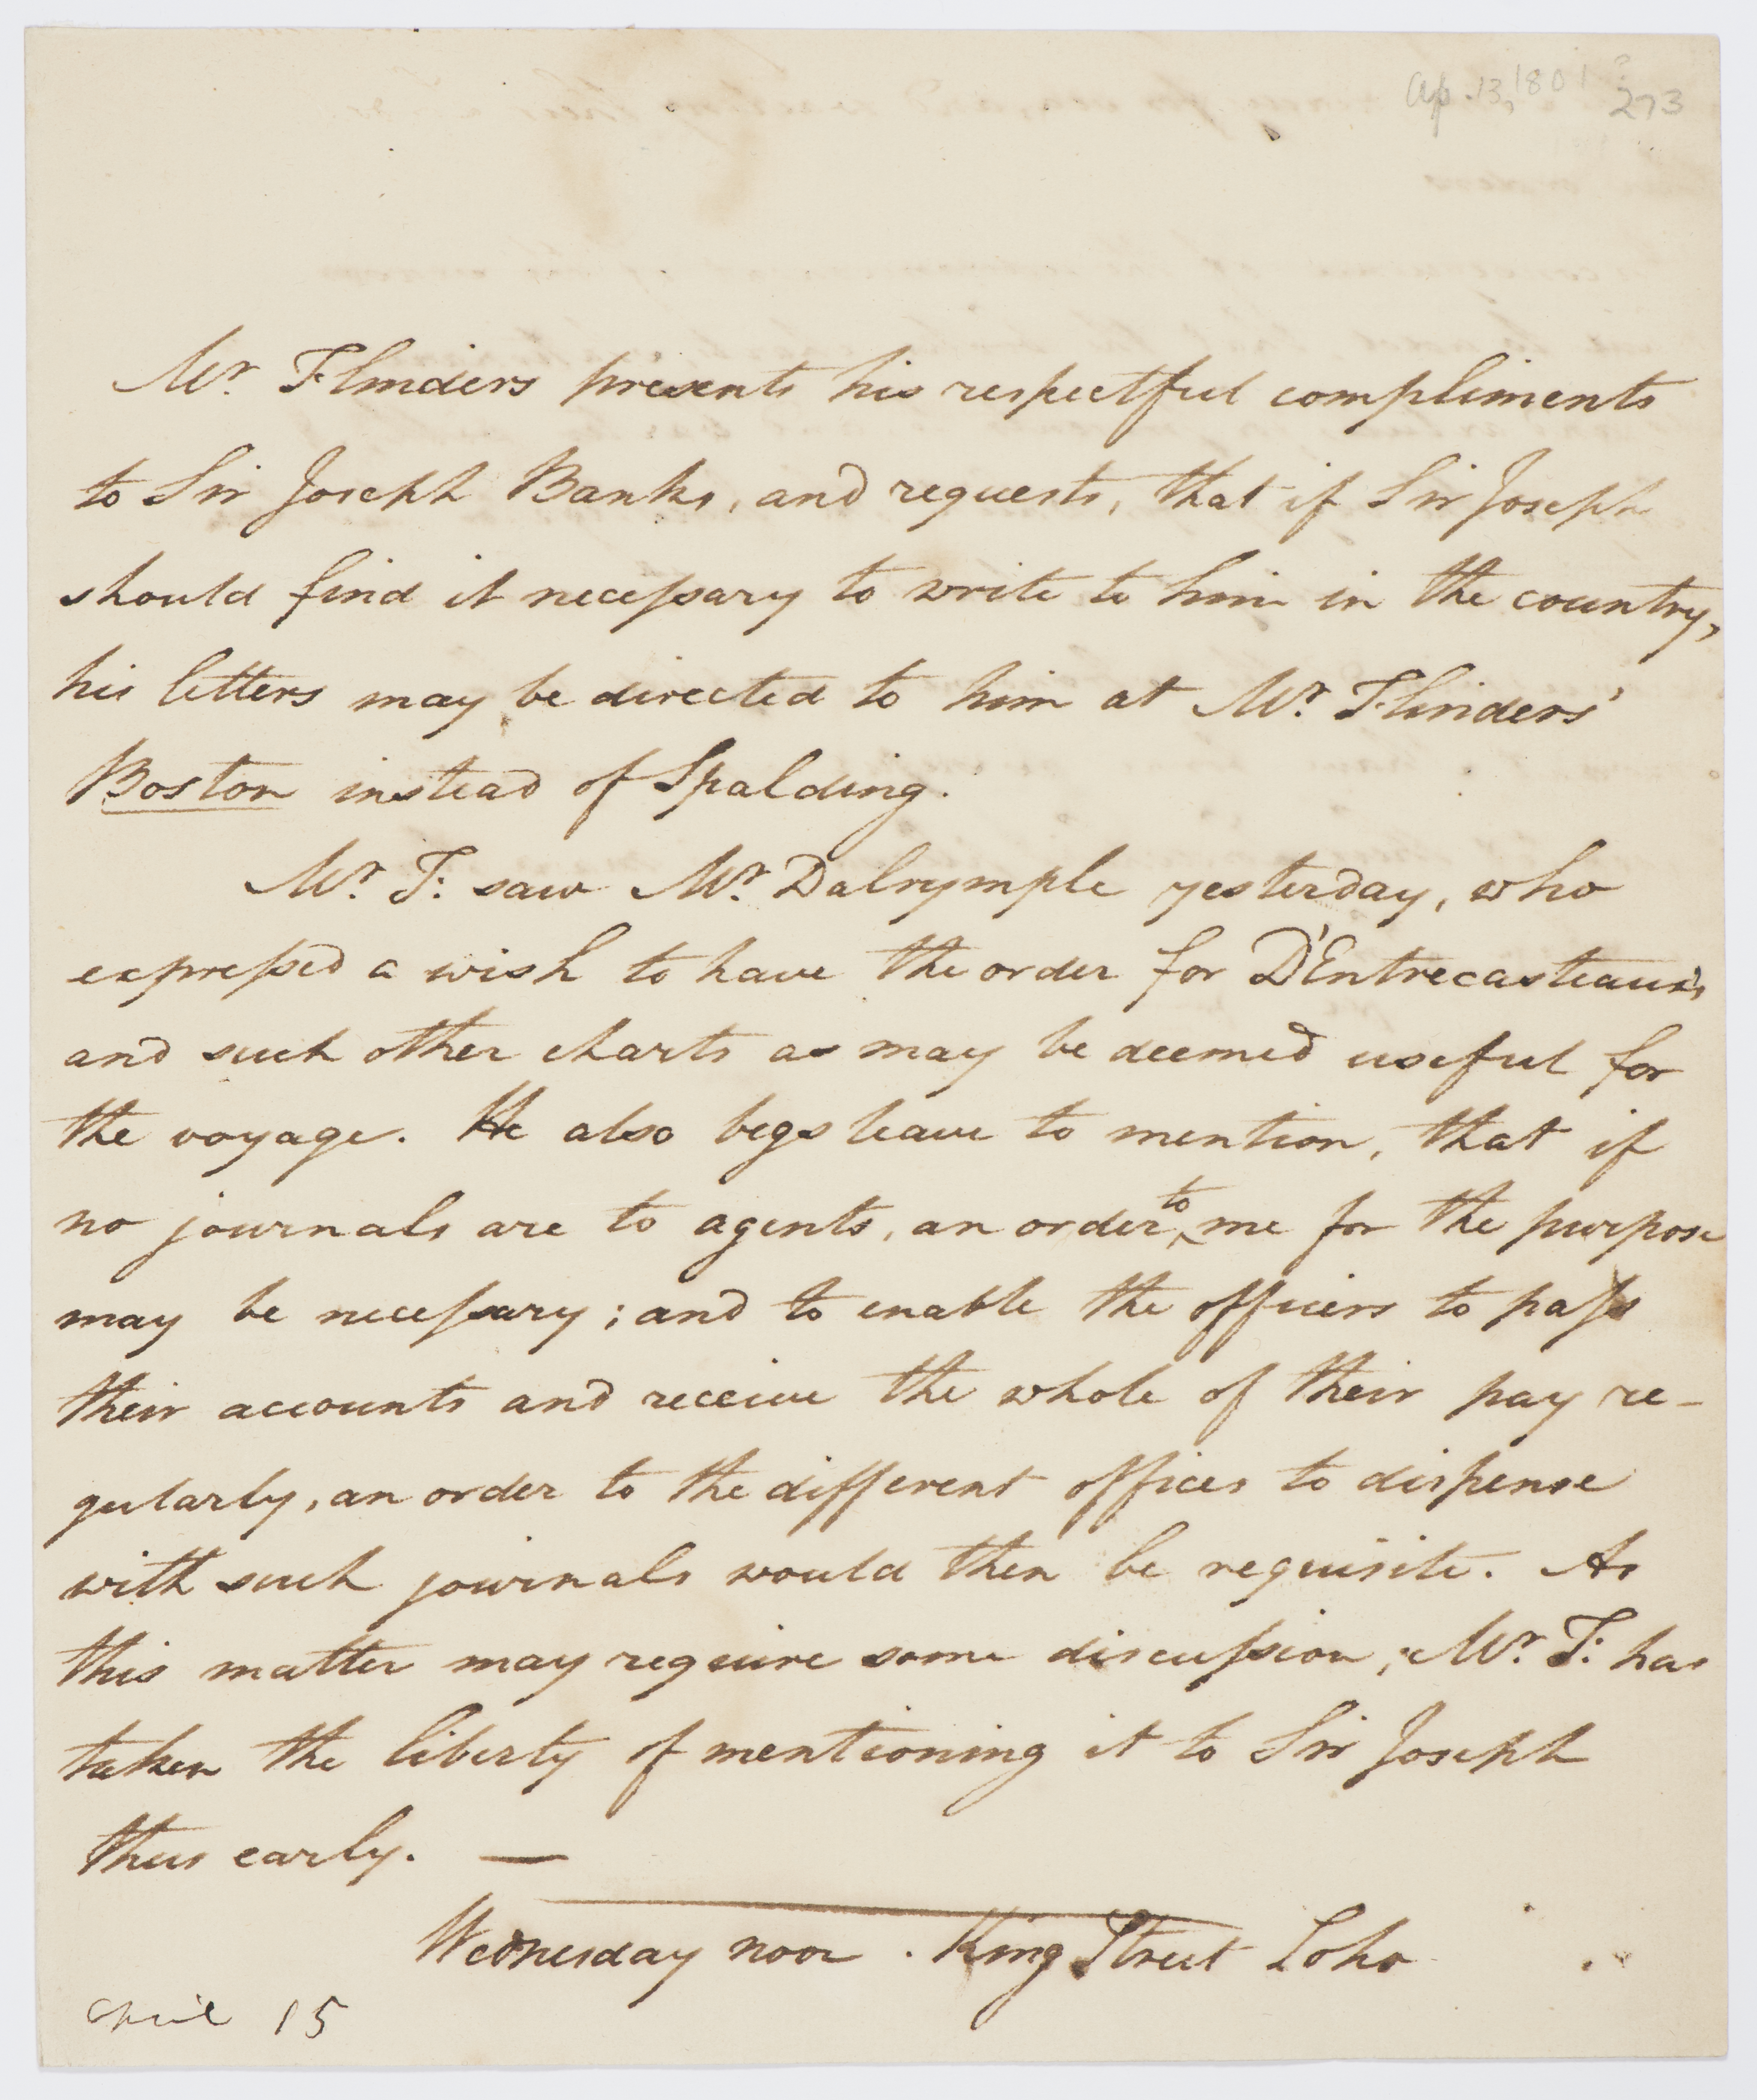 Ap. 13, 1801 ?
273
Mr. Flinders presents his respectful compliments
to Sir Joseph Banks, and requests, that if Sir Joseph
should find it necessary to write to him in the country,
his letters may be directed to him at Mr. Flinders'
Boston instead of Spalding.
Mr. F: saw Mr. Dalrymple yesterday, who
expressed a wish to have the order for D'Entrecasteaux's
and such other charts as may be deemed useful for
the voyage. He also begs leave to mention, that if
no journals are to agents, an order to me for the purpose
may be necessary; and to enable the officers to pass
their accounts and receive the whole of their pay re-
gularly, an order to the different offices to dispense
with such journals would then be requisite. As
this matter may require some discussion, Mr. F: has
taken the liberty of mentioning it to Sir Joseph
thus early. —
Wednesday noon. King Street Soho
April 15